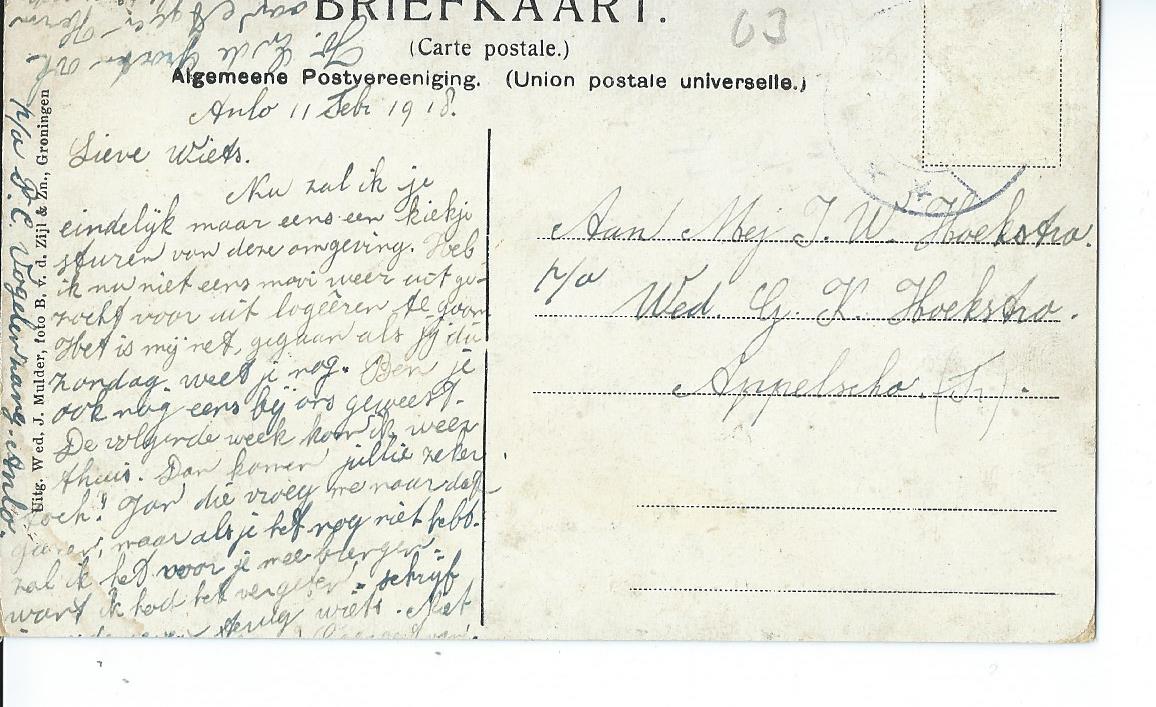 BRIEFKAART.
(Carte postale.)
Algemeene Postvereeniging. (Union postale universelle.)
Anlo 11 Febr 1918.
Lieve Wiets.
Nu zal ik je
eindelijk maar eens een kiekje
sturen van deze omgeving. Heb
ik nu niet eens mooi weer uit ge-
zocht voor uit logeeren te gaan
Het is mij net gegaan als jij die
zondag. weet je nog. Ben je
ook nog eens bij ons geweest.
De volgende week kom ik weer
thuis. Dan komen jullie zeker
toch! Jan die vroeg me naar dat
maar als je het nog niet hebt.
zal ik het voor je mee brengen.
want ik had het vergeten. schrijf
terug wiets. Met
p/a P. C. Vogelenzang. Anlo.
Uitg. Wed. J. Mulder, foto B. v. d. Zijl & Zn., Groningen
Aan Mej J. W. Hoekstra.
p/a
Wed. G. K. Hoekstra.
Appelscha. (Fr).
03